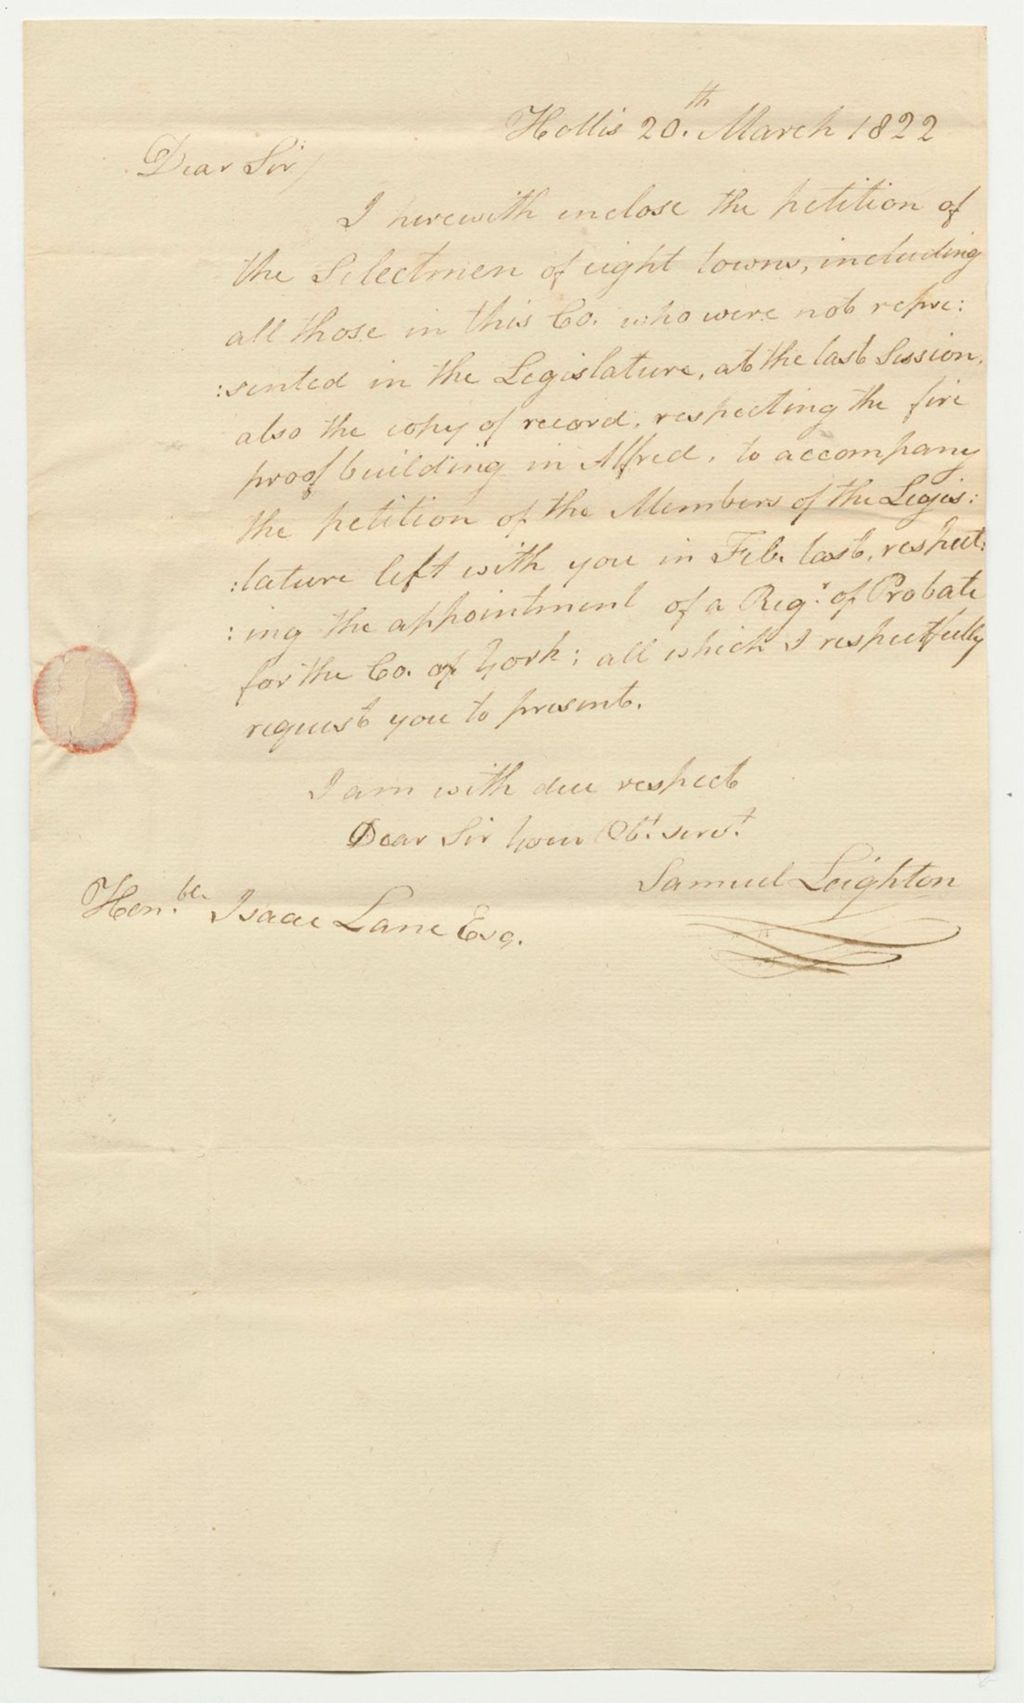 Hollis 20.th March 1822
Dear Sir/
I herewith enclose the petition of
the Selectmen of eight towns, including
all those in this Co. who were not repre:
:sented in the Legislature, at the last Session,
also the copy of record, respecting the fire
proof building in Alfred, to accompany
the petition of the Members of the Legis:
:lature left with you in Feb. last, respect:
:ing the appointment of a Regr. of Probate
for the Co. of York; all which I respectfully
request you to present.
I am with due respect
Dear Sir Your Obt. servt.
Samuel Leighton
Hon.ble Isaac Lane Esq.